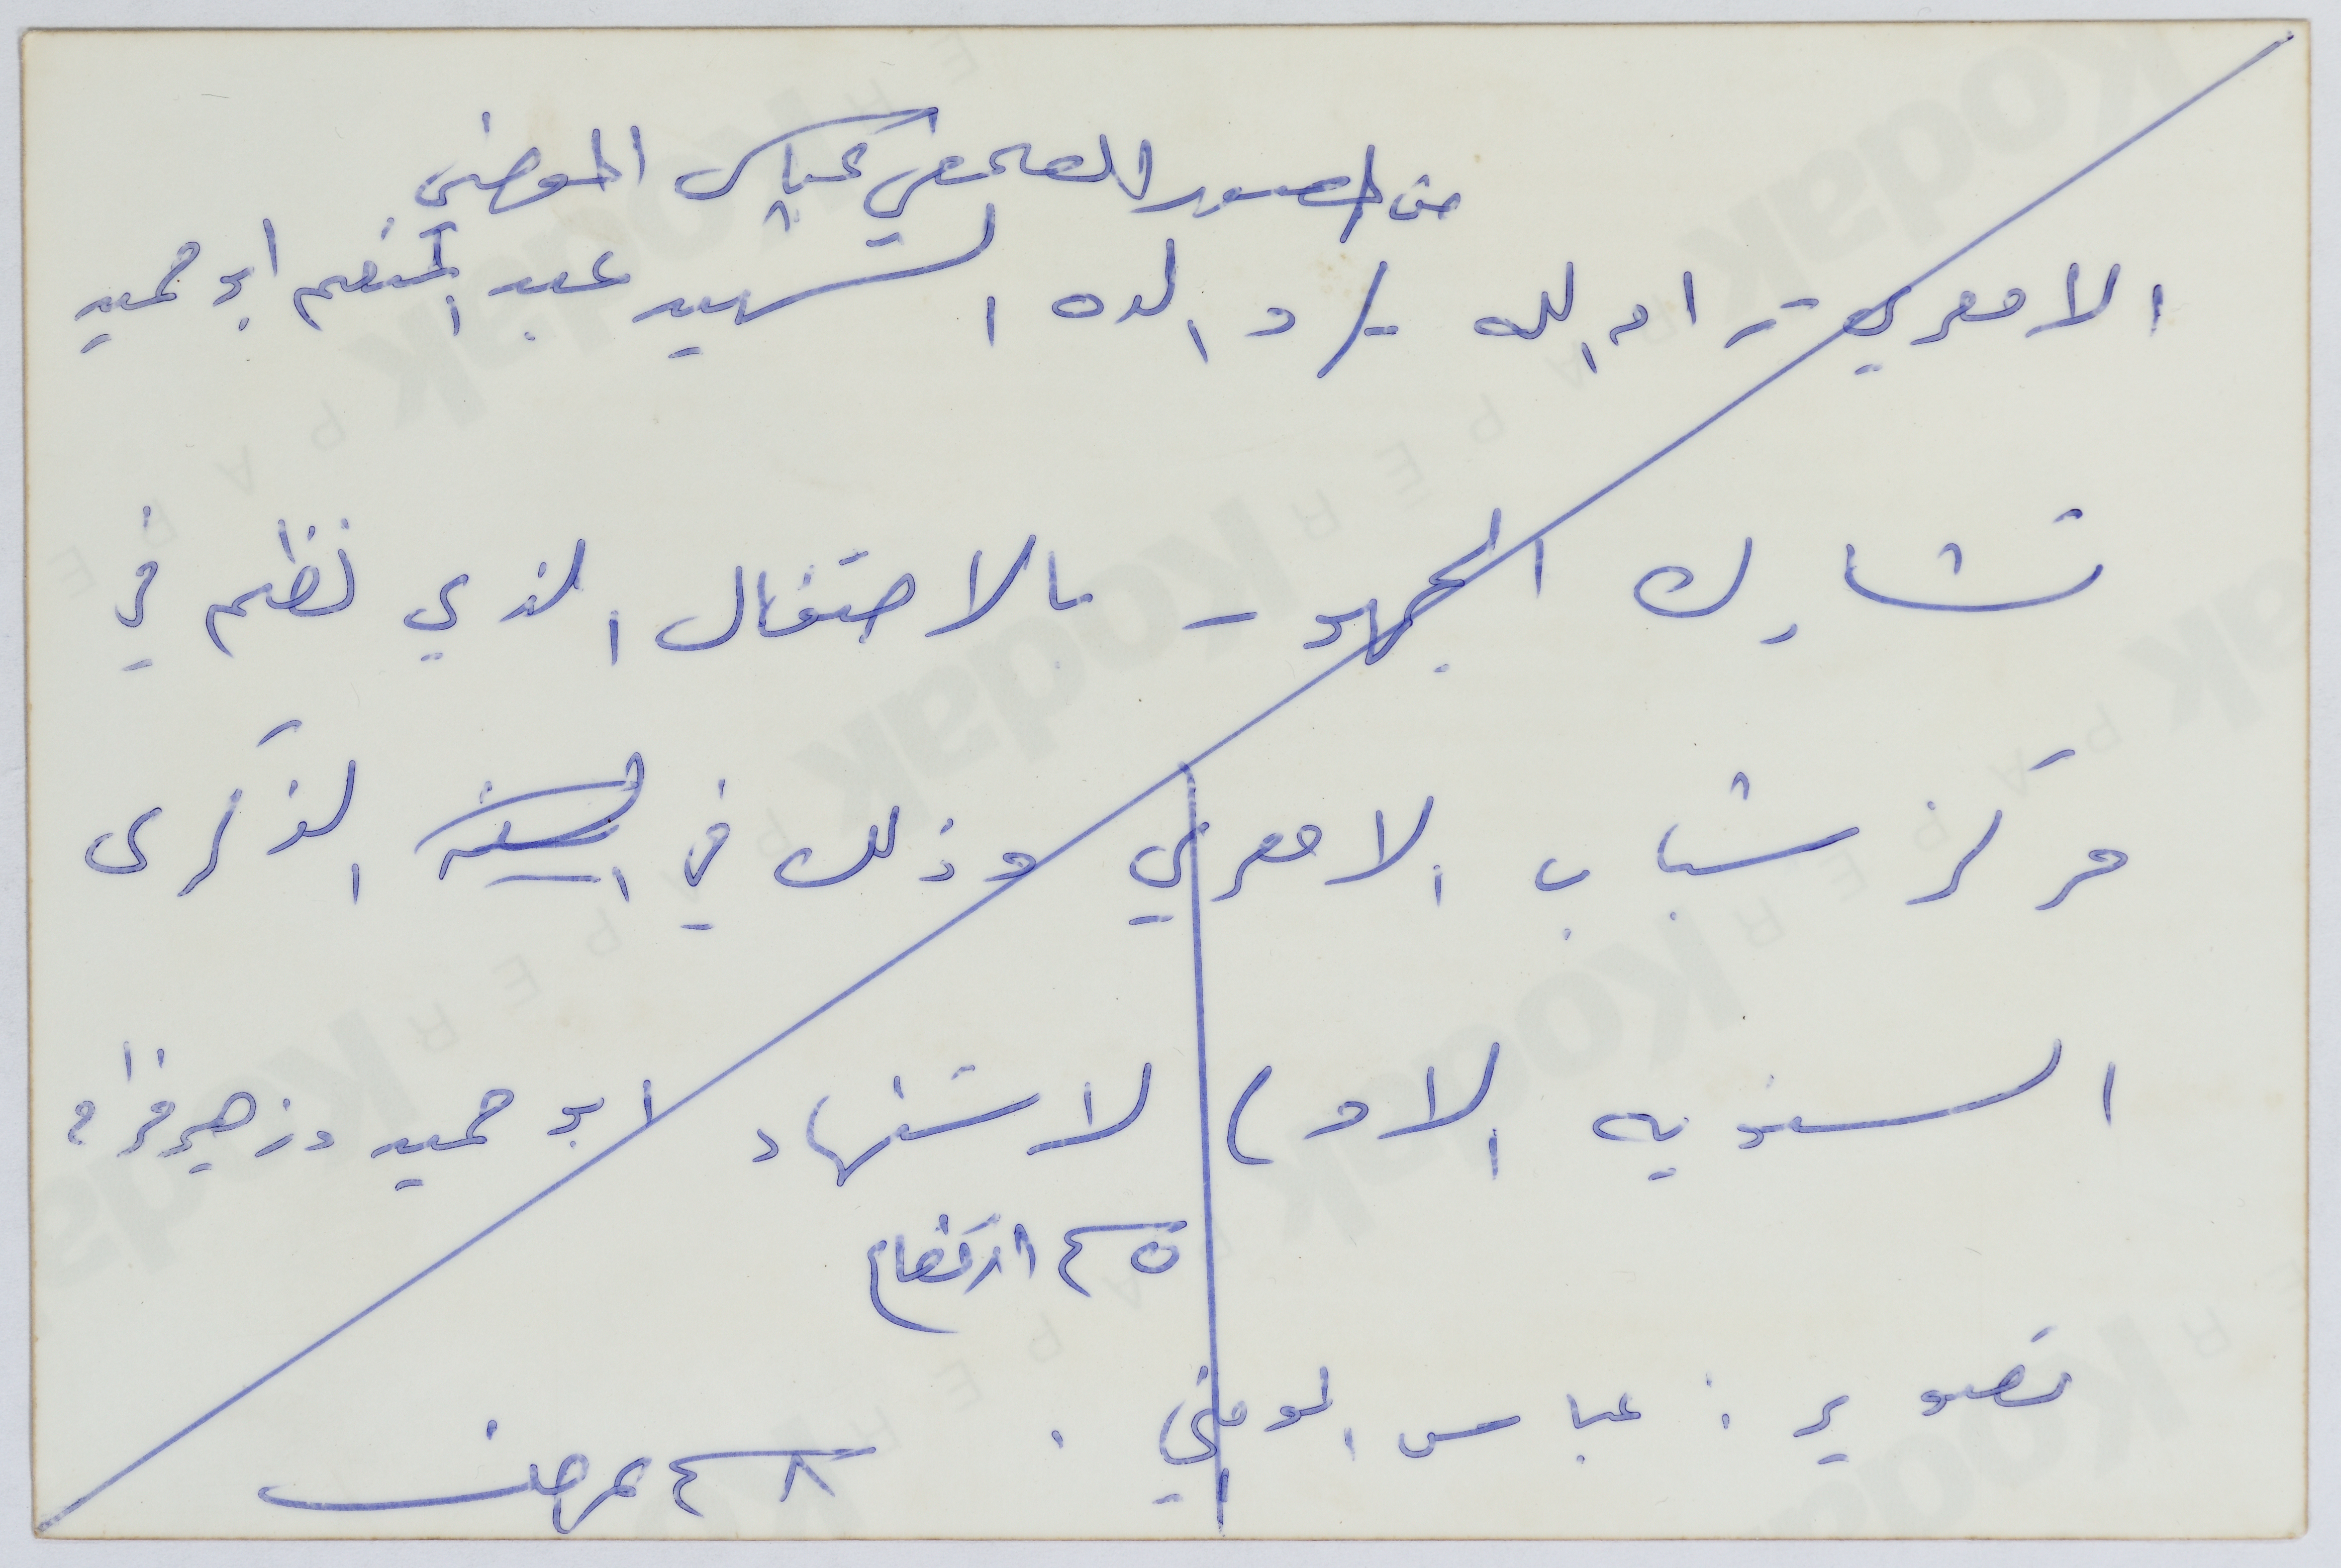 من المصور الصحفي عباس المومني
الامعري - رام الله -/ والدة الشهيد عبد المنعم ابو حميد
تشارك الجمهور بالاحتفال الذي نظم في
مركز شباب الامعري وذلك في السنه الذكرى
السنويه الاولى لاستشهاد ابو حميد وزهير فراح
٤٥ ارتفاع
تصوير : عباس المومني .
٤٨ عرض
Kodak
PAPER